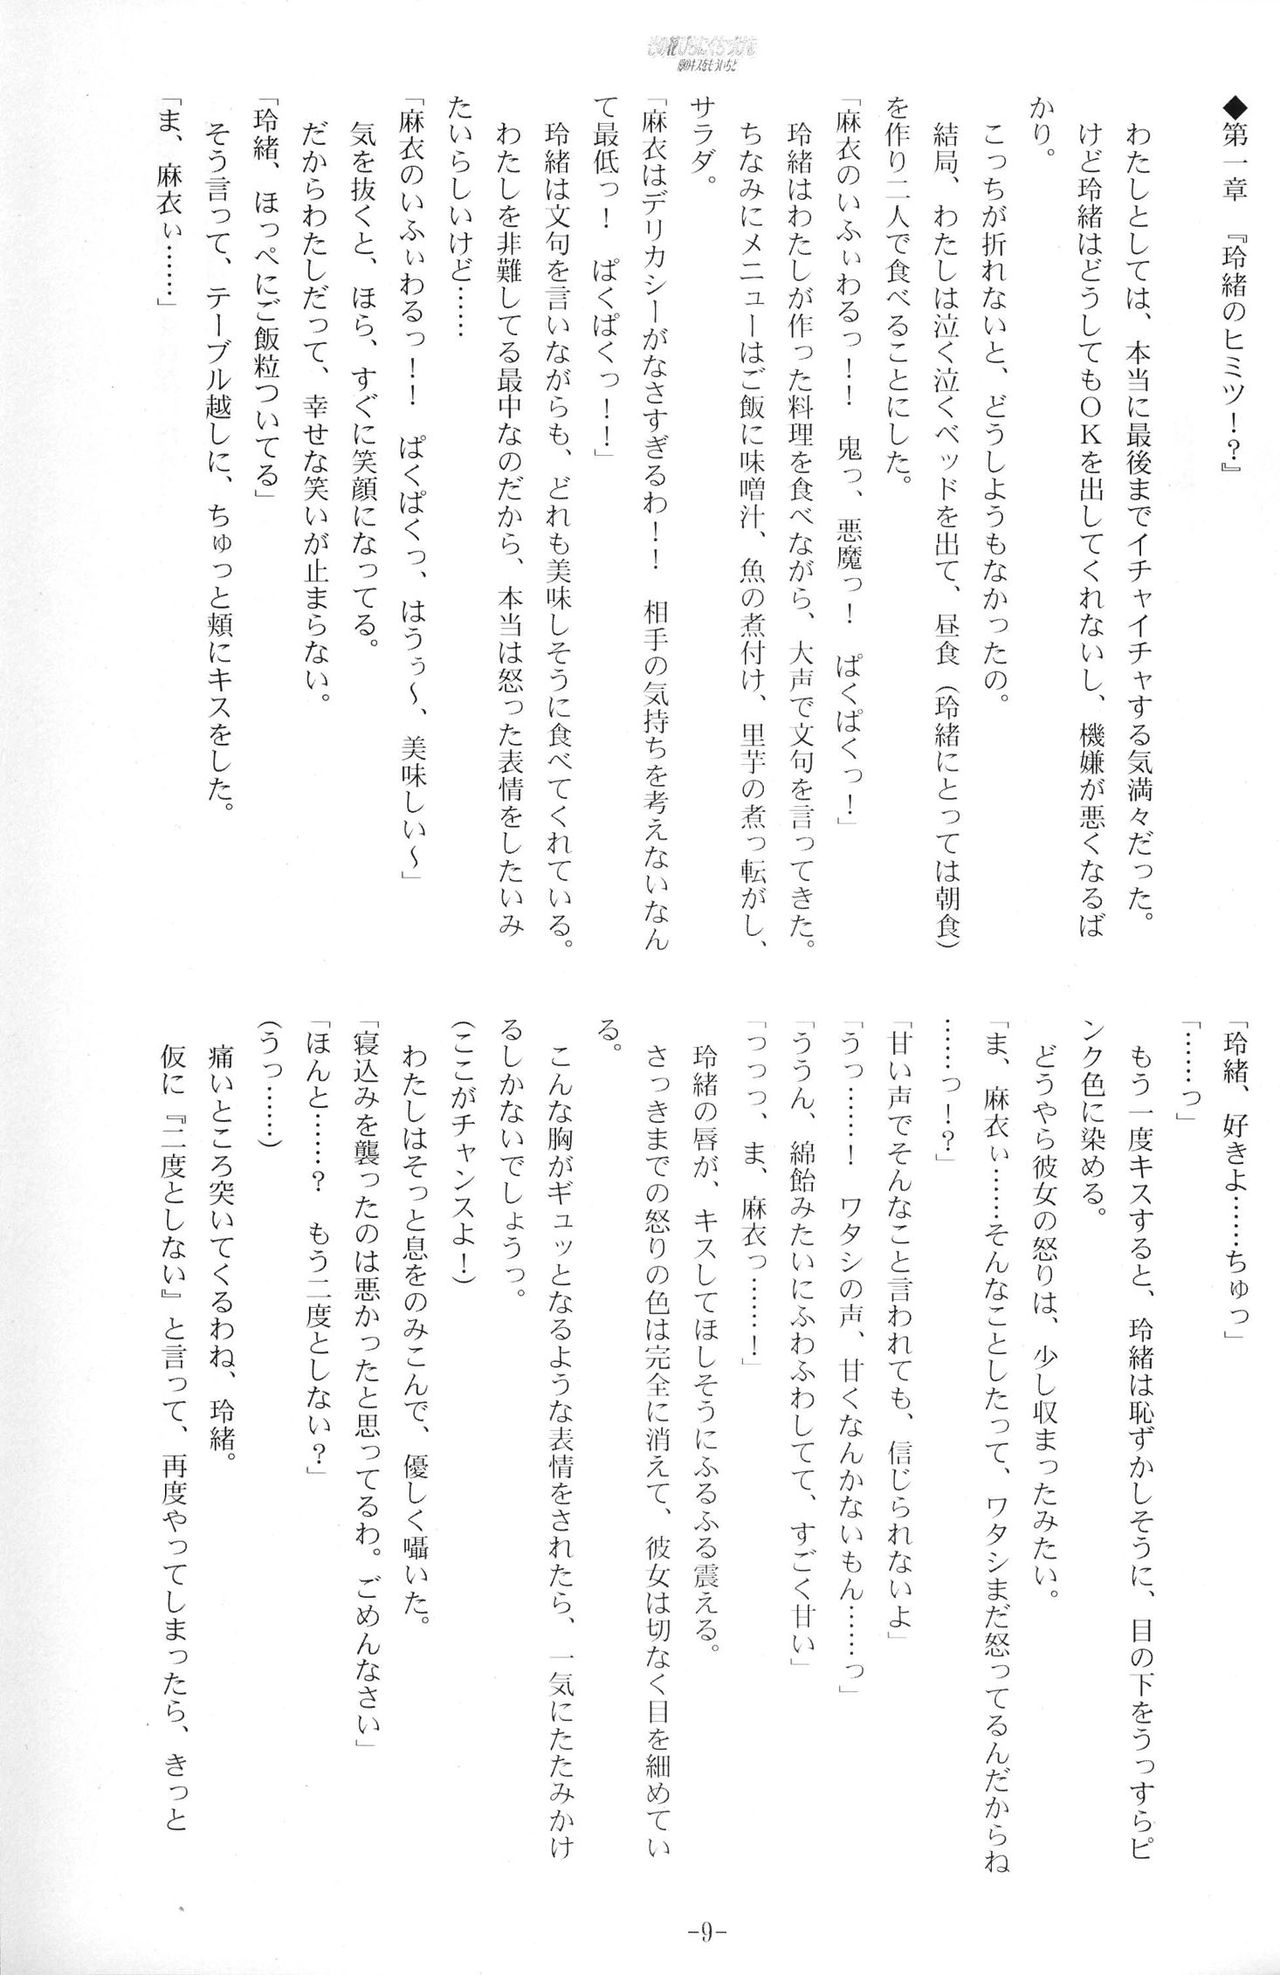 ◆第一章　『玲緒のヒミツ！？』
　わたしとしては、本当に最後までイチャイチャする気満々だった。
　けど玲緒はどうしてもＯＫを出してくれないし、機嫌が悪くなるば
かり。
　こっちが折れないと、どうしようもなかったの。
　結局、わたしは泣く泣くベッドを出て、昼食（玲緒にとっては朝食）
を作り二人で食べることにした。
「麻衣のいふぃわるっ！！　鬼っ、悪魔っ！　ぱくぱくっ！」
　玲緒はわたしが作った料理を食べながら、大声で文句を言ってきた。
　ちなみにメニューはご飯に味噌汁、魚の煮付け、里芋の煮っ転がし、
サラダ。
「麻衣はデリカシーがなさすぎるわ！！　相手の気持ちを考えないなん
て最低っ！　ぱくぱくっ！！」
　玲緒は文句を言いながらも、どれも美味しそうに食べてくれている。
　わたしを非難してる最中なのだから、本当は怒った表情をしたいみ
たいらしいけど……
「麻衣のいふぃわるっ！！　ぱくぱくっ、はうぅ～、美味しい～」
　気を抜くと、ほら、すぐに笑顔になってる。
　だからわたしだって、幸せな笑いが止まらない。
「玲緒、ほっぺにご飯粒ついてる」
　そう言って、テーブル越しに、ちゅっと頬にキスをした。
「ま、麻衣ぃ……」
「玲緒、好きよ……ちゅっ」
「……っ」
　もう一度キスすると、玲緒は恥ずかしそうに、目の下をうっすらピ
ンク色に染める。
　どうやら彼女の怒りは、少し収まったみたい。
「ま、麻衣ぃ……そんなことしたって、ワタシまだ怒ってるんだからね
……っ！？」
「甘い声でそんなこと言われても、信じられないよ」
「うっ……！　ワタシの声、甘くなんかないもん……っ」
「ううん、綿飴みたいにふわふわしてて、すごく甘い」
「っっっ、ま、麻衣っ……！」
　玲緒の唇が、キスしてほしそうにふるふる震える。
　さっきまでの怒りの色は完全に消えて、彼女は切なく目を細めてい
る。
　こんな胸がギュッとなるような表情をされたら、一気にたたみかけ
るしかないでしょうっ。
（ここがチャンスよ！）
　わたしはそっと息をのみこんで、優しく囁いた。
「寝込みを襲ったのは悪かったと思ってるわ。ごめんなさい」
「ほんと……？　もう二度としない？」
（うっ……）
　痛いところ突いてくるわね、玲緒。
　仮に『二度としない』と言って、再度やってしまったら、きっと
-9-